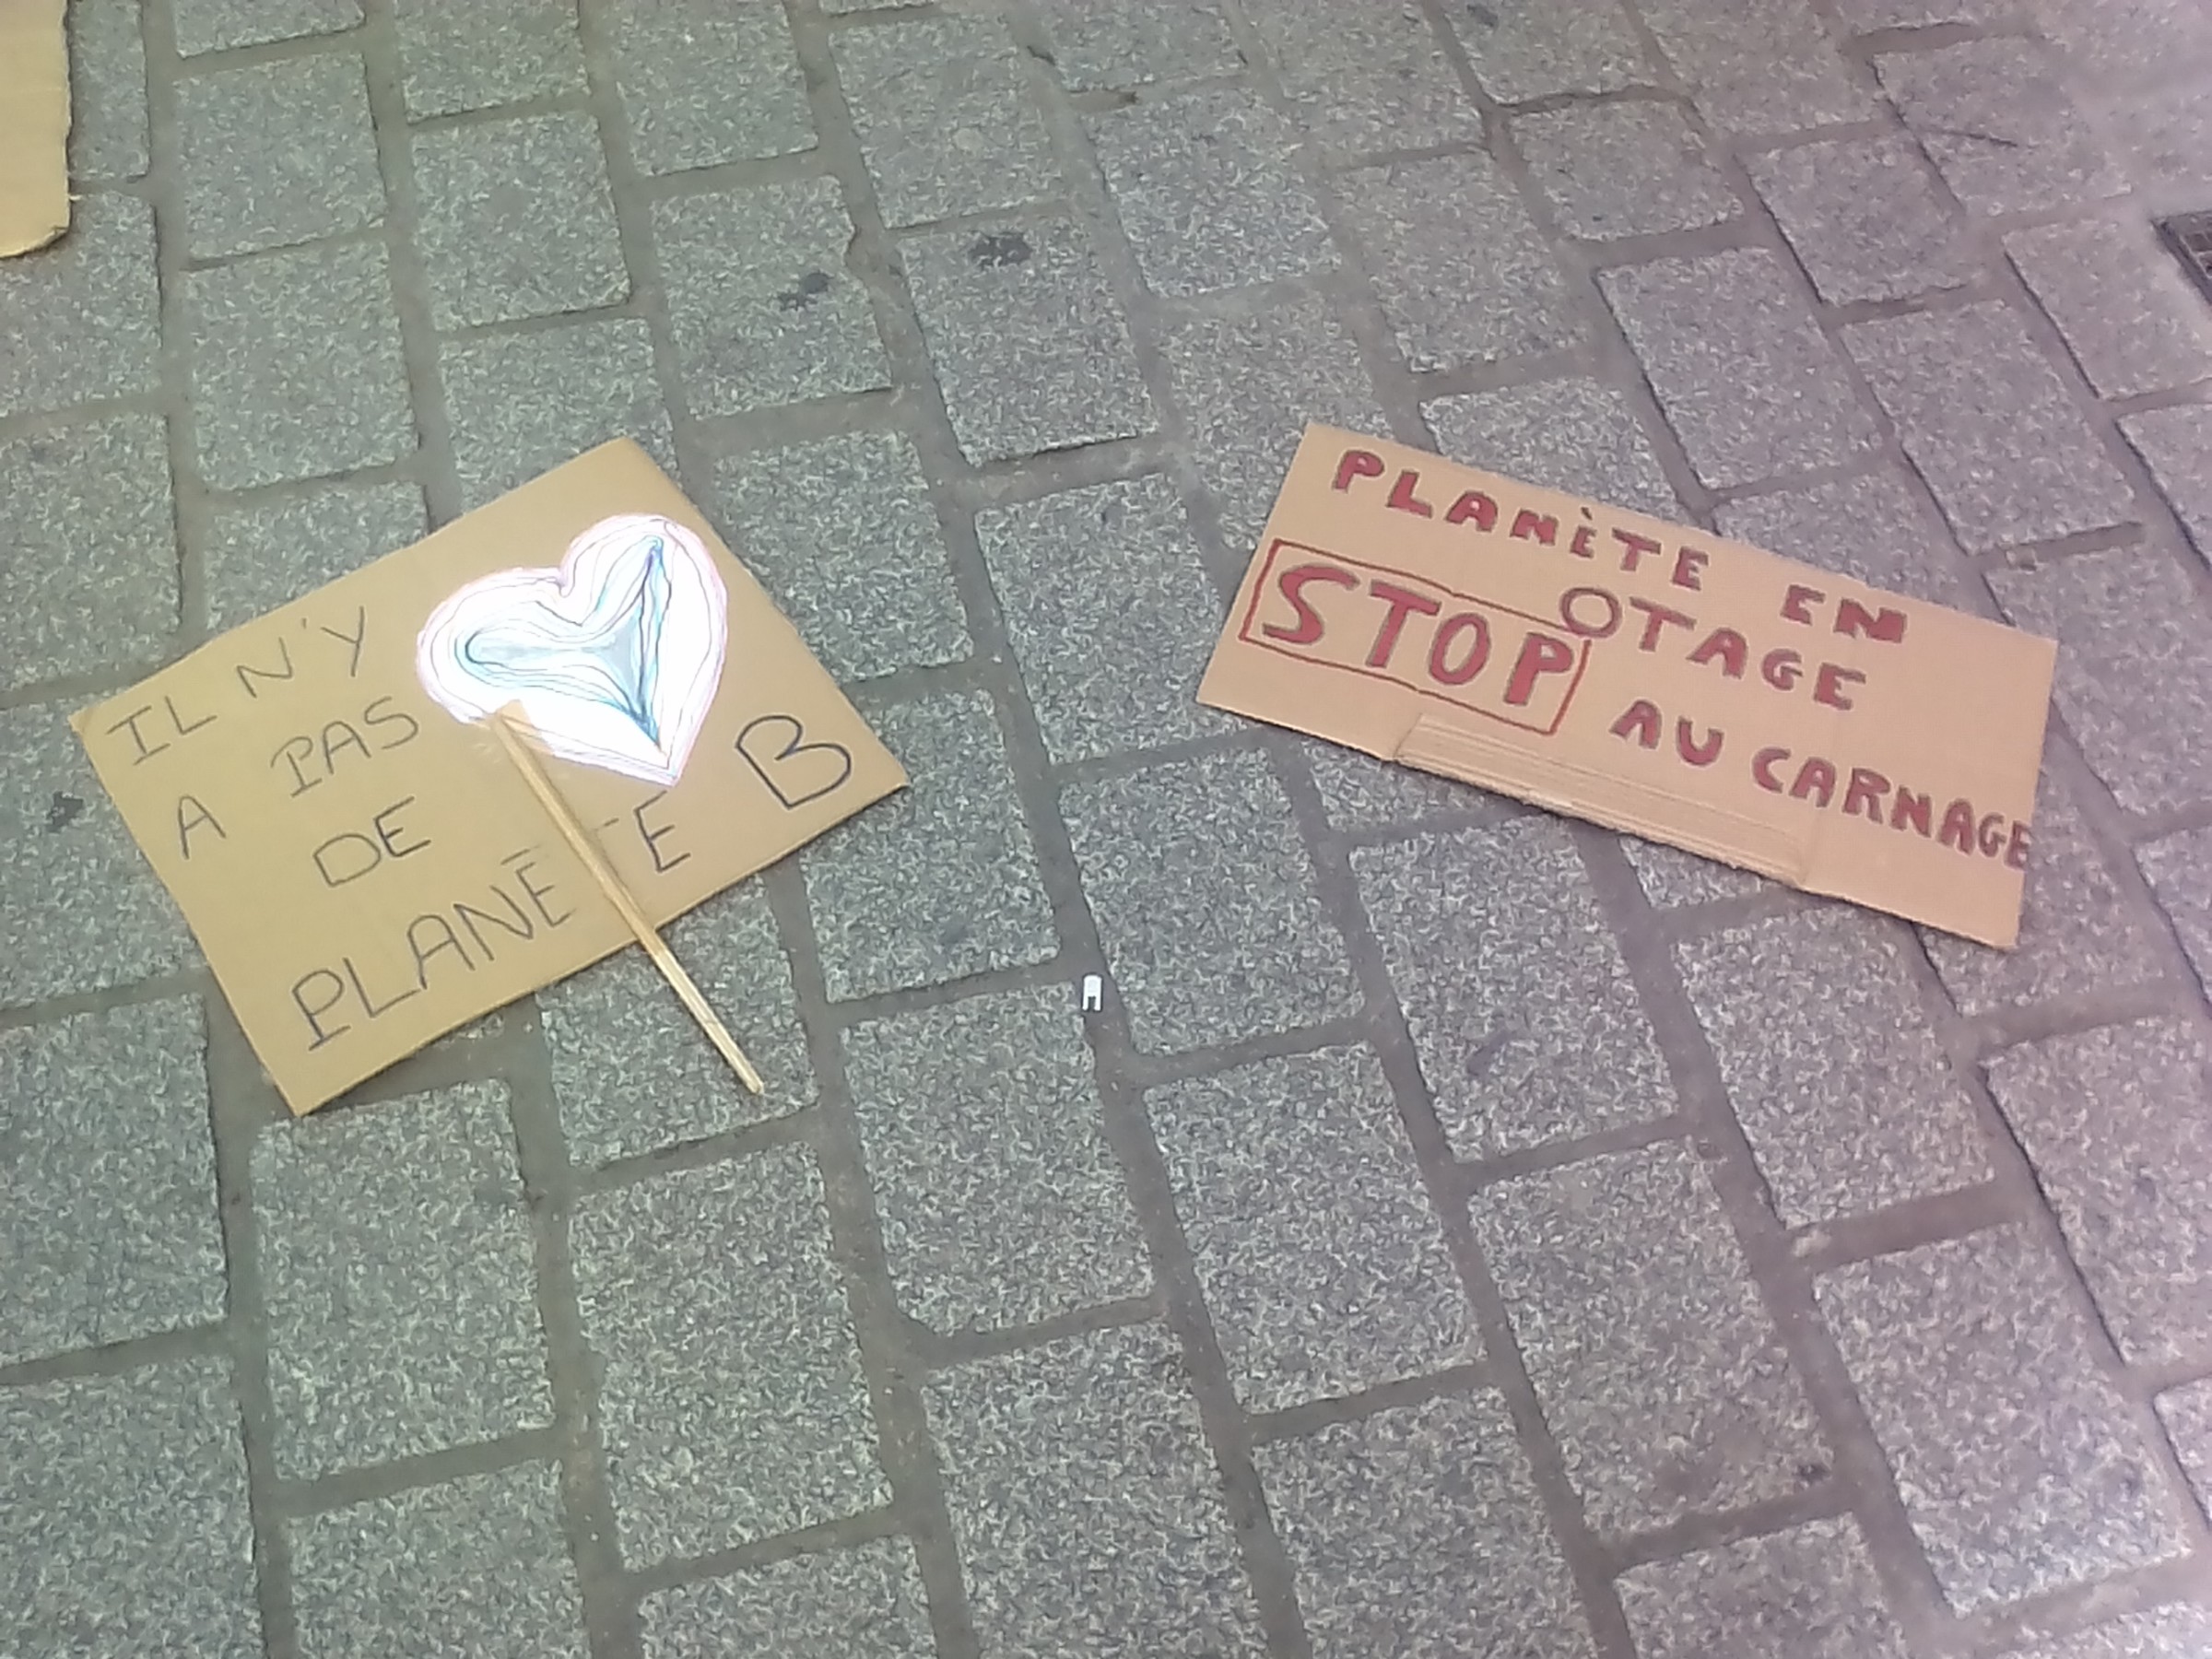 IL N'Y
A PAS
DE
PLANÈTE B
PLANÈTE EN
OTAGE
STOP AU CARNAGE